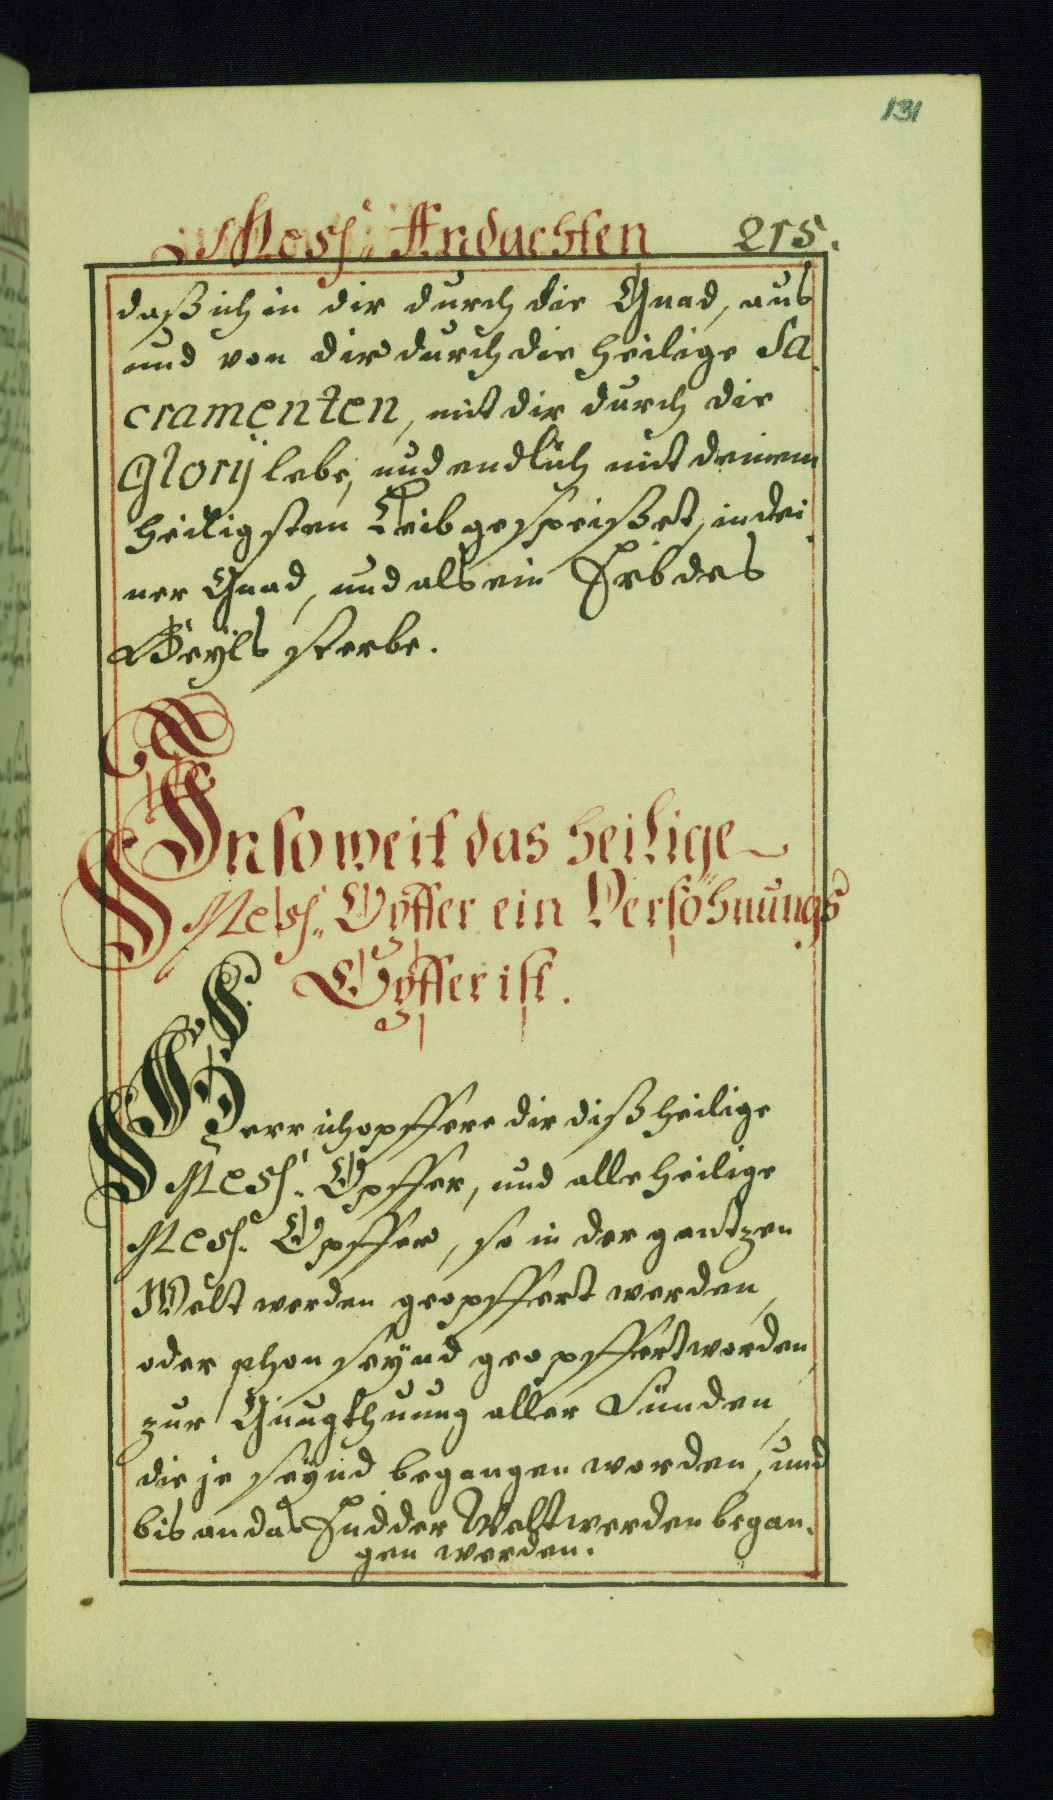 131
Mess: Andachten 215.
daß ich in dir durch die Gnad, aus
und von dir durch die heilige Sa
cramenten, mit dir durch die
Glory lebe, und endlich mit deinem
heiligsten Leib gespeißet, in dei
ner Gnad, und als ein Erb des
Heyls sterbe.
In so weit das heilige
Mess: Opffer ein Versöhnungs
Opffer ist.
Herr ich opffere dir diß heilige
Mess: Opffer, und alle heilige
Mess: Opffer, so in der gantzen
Welt werden geopffert werden,
oder schon seynd geopffert worden,
zur Gnugthuung aller Sünden,
die je seynd begangen worden, und
bis an das End der Welt werden began,
gen werden.